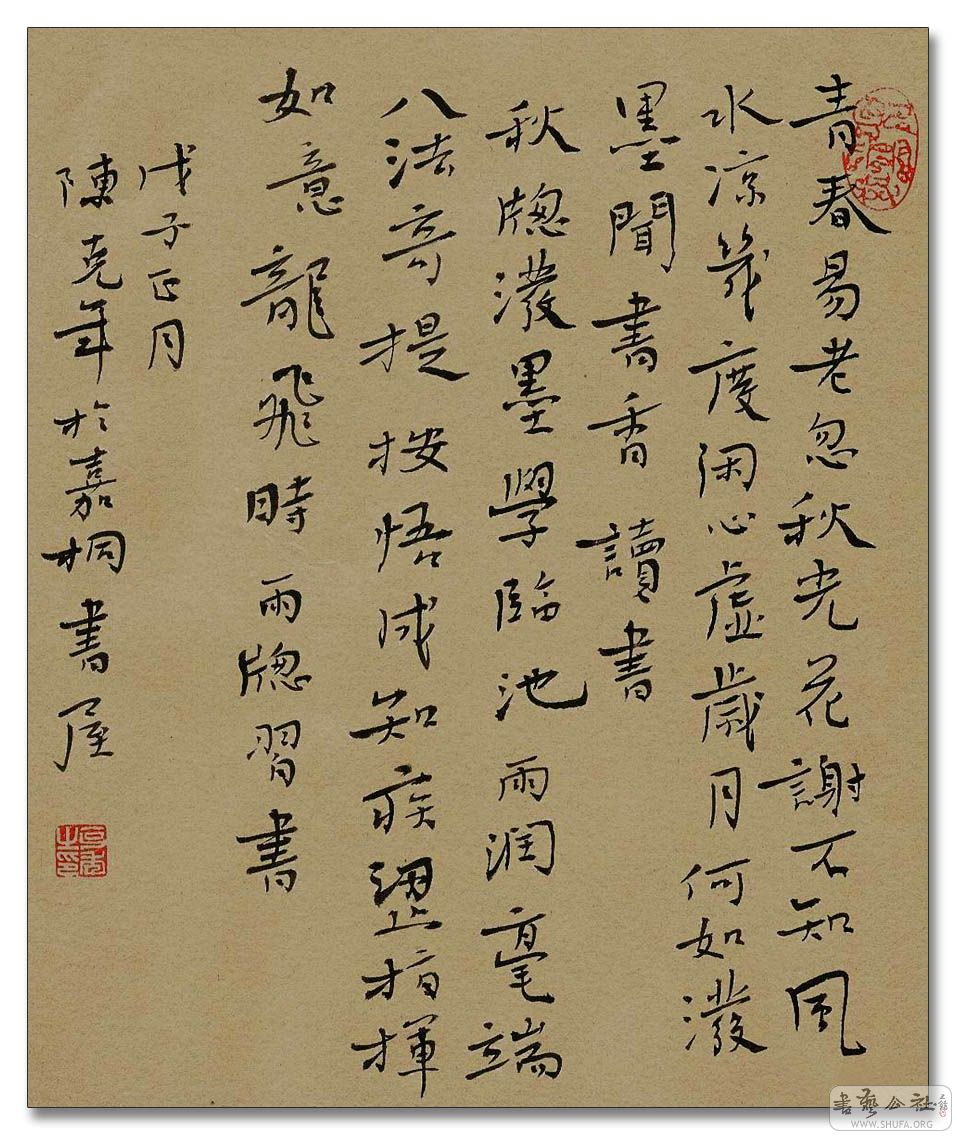 青春易老忽秋光花謝不知風
水涼幾度闲心虛歲月何如潑
墨聞書香 讀書
秋牕潑墨學臨池雨润毫端
八法奇提按悟成知疾澀指揮
如意龍飛時 雨牕習書
戊子正月
陳克年於嘉桐書屋
書藝公社
WWW.SHUFA.ORG